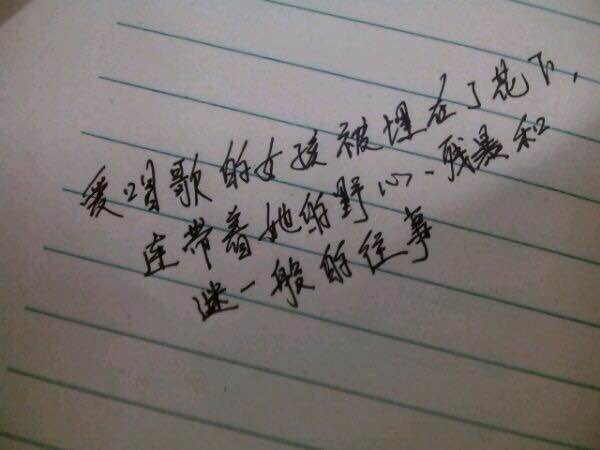 爱唱歌的女孩被埋在了花下，
连带着她的野心、残暴和
谜一般的往事